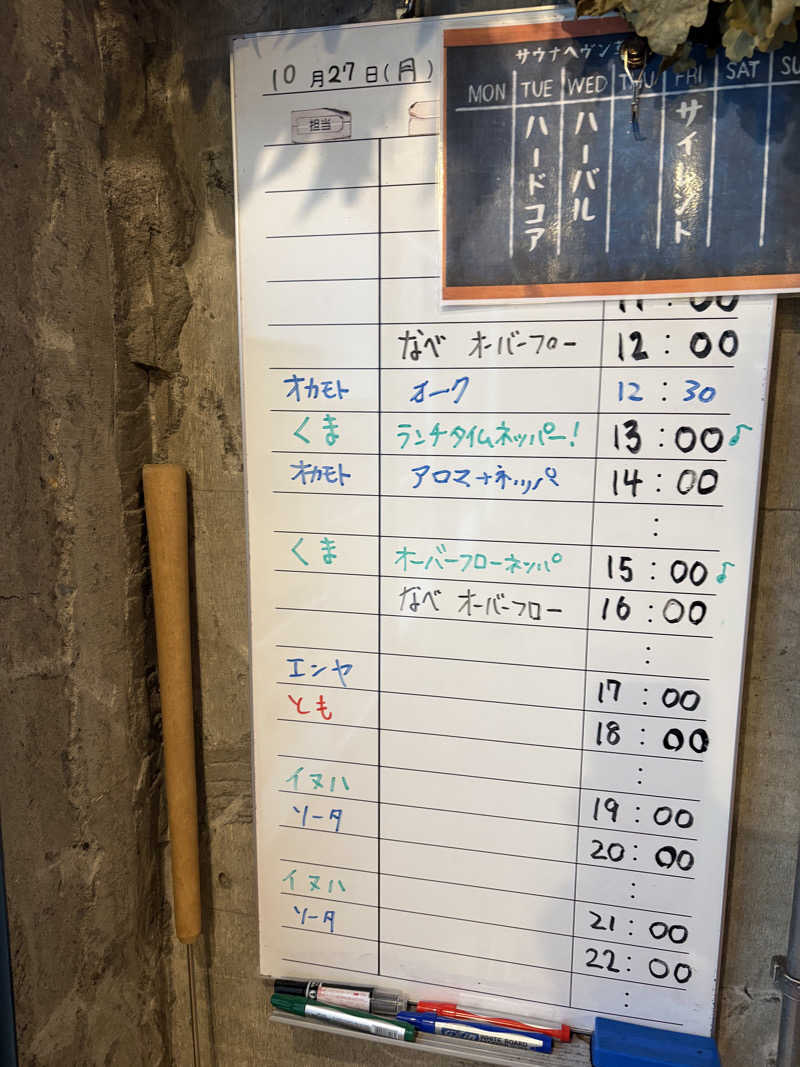 10月27日(月)
担当
サウナヘヴン
MON TUE WED THU FRI SAT SU
ハードコア
ハーバル
サイレント
11:00
なべ オーバーフロー 12:00
オカモト オーク 12:30
くま ランチタイムネッパー! 13:00♪
オカモト アロマ+ネッパ 14:00
:
くま オーバーフローネッパ 15:00♪
なべ オーバーフロー 16:00
:
エンヤ 17:00
とも 18:00
:
イヌハ 19:00
ソータ 20:00
:
イヌハ 21:00
ソータ 22:00
: